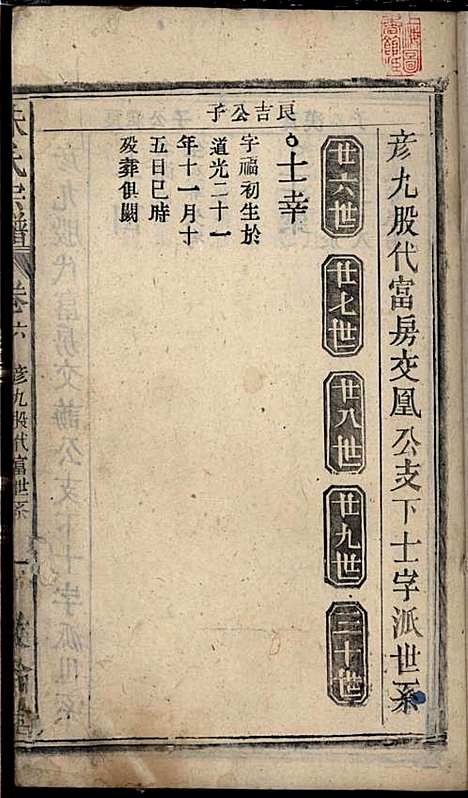 彦九股代富房交凰公支下士字派世系
廿六世
廿七世
廿八世
廿九世
三十世
良吉公子
士幸
字福初生於
道光二十一
年十一月十
五日巳時
殁葬俱闕
朱氏宗譜
卷六
彦九股代富世系